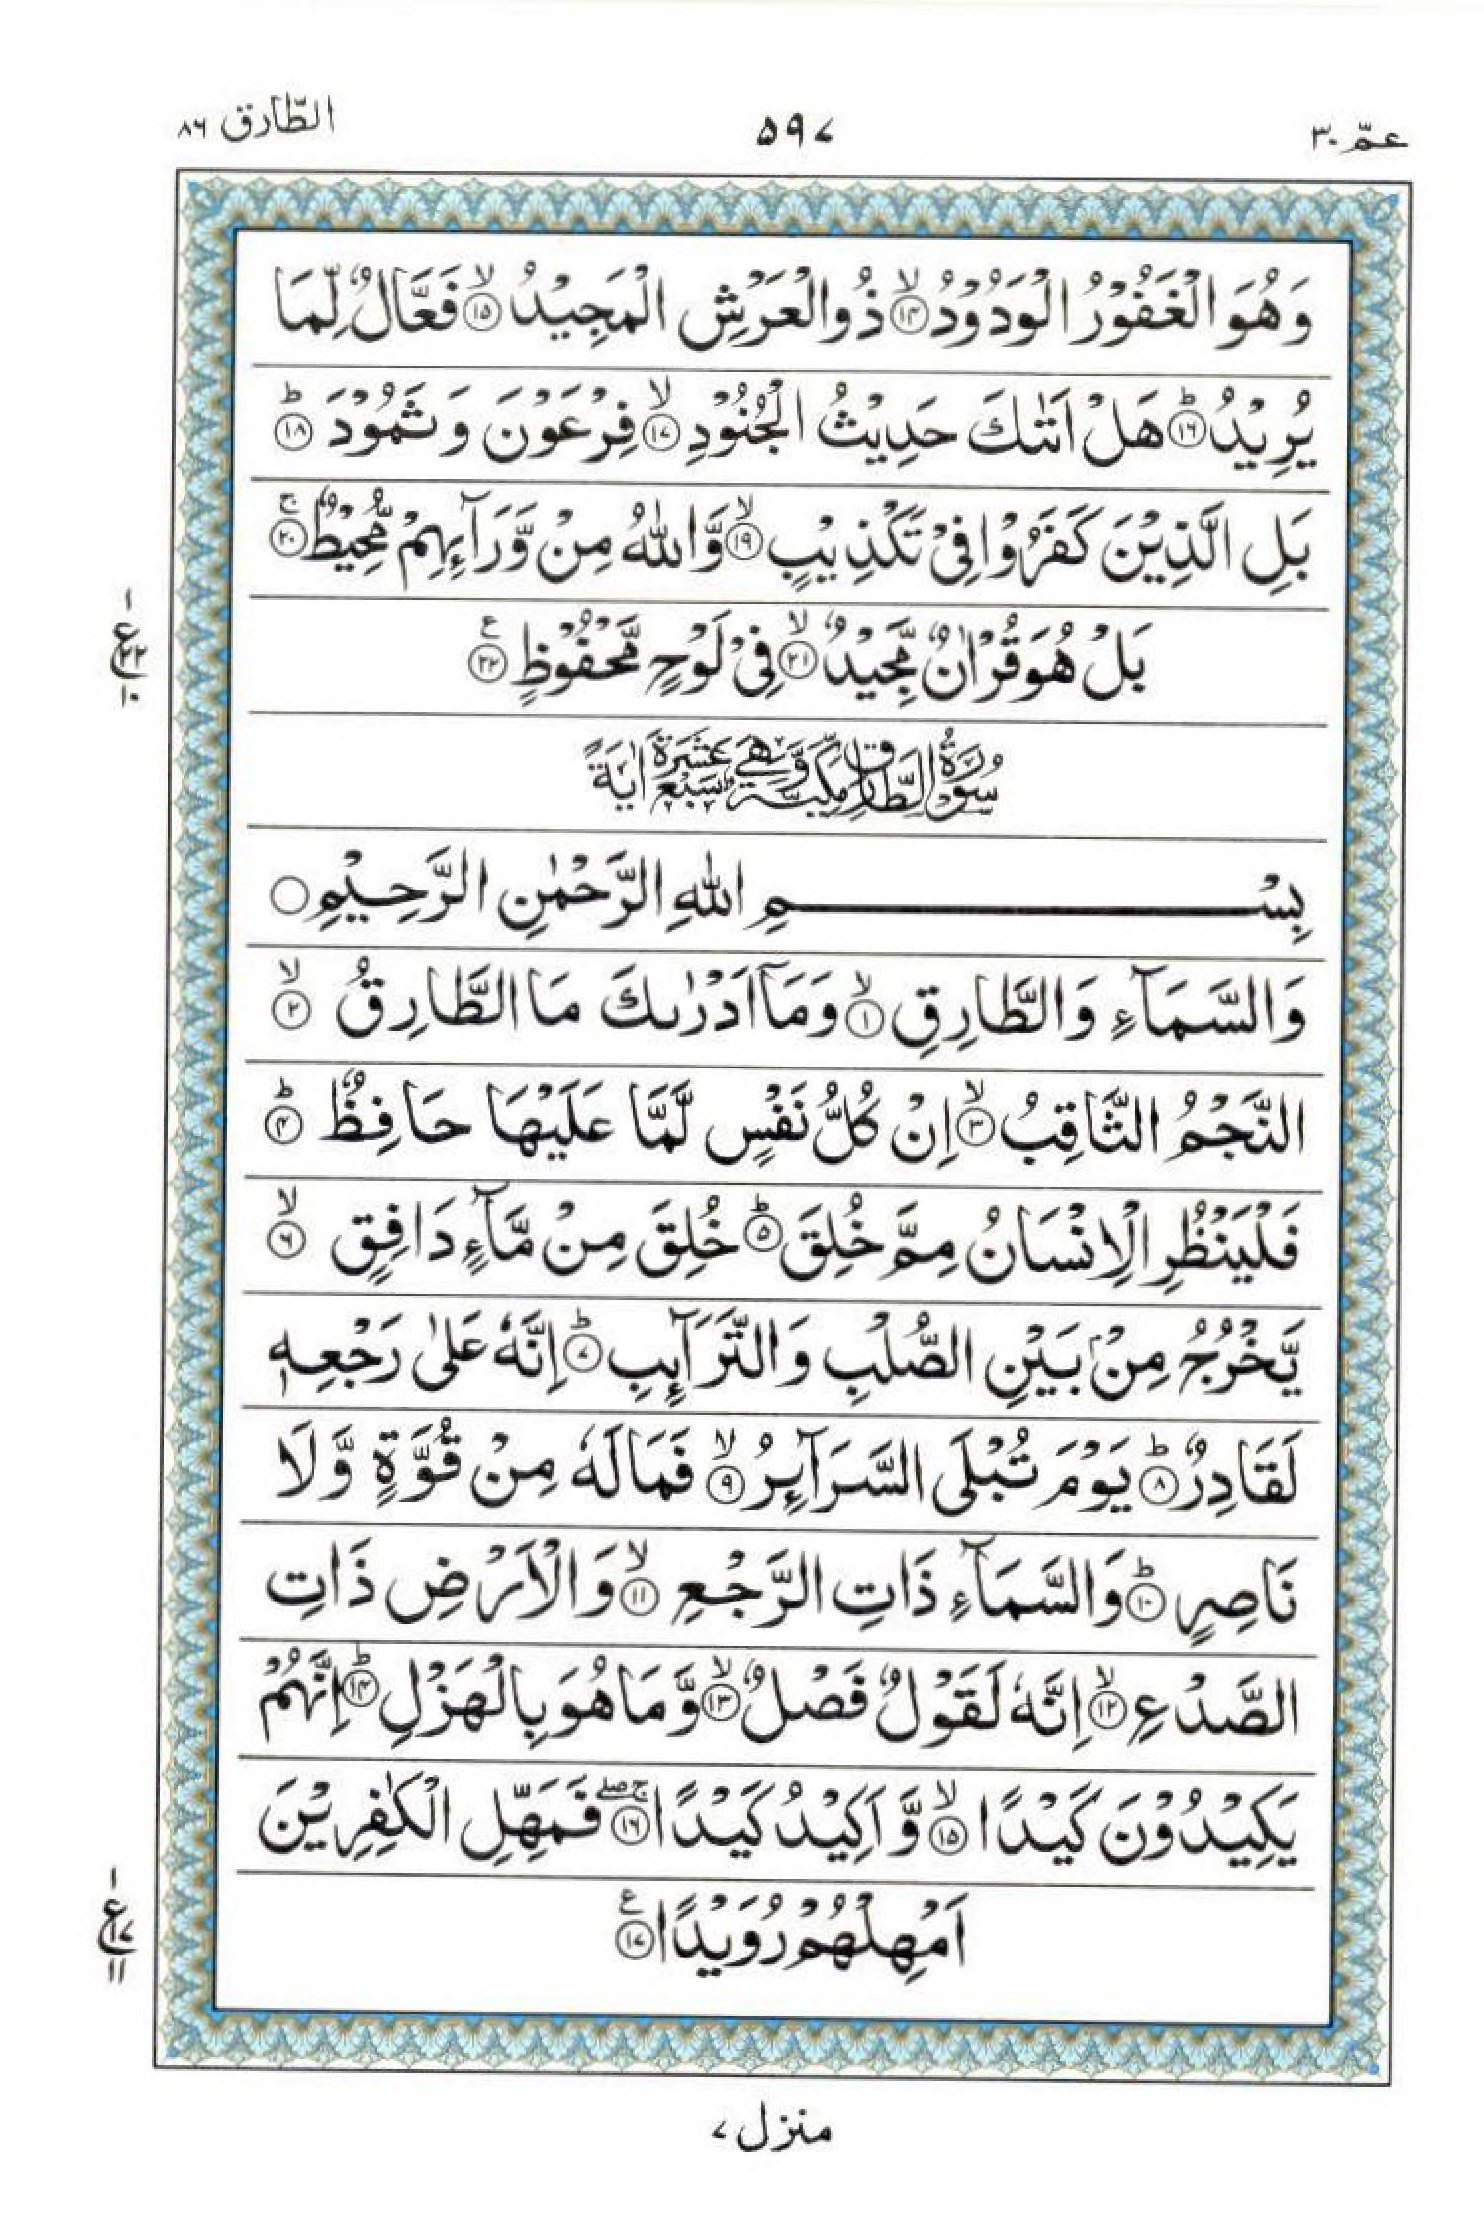 عمّ ٣٠
٥٩٧
الطّارق ٨٦
وَهُوَ الْغَفُوْرُ الْوَدُوْدُ ۙ‏﴿۱۴﴾ ذُو الْعَرْشِ الْمَجِيْدُ ۙ‏﴿۱۵﴾ فَعَّالٌ لِّمَا
يُرِيْدُ ؕ‏﴿۱۶﴾ هَلْ اَتٰىكَ حَدِيْثُ الْجُنُوْدِ ۙ‏﴿۱۷﴾ فِرْعَوْنَ وَ ثَمُوْدَ ؕ‏﴿۱۸﴾
بَلِ الَّذِيْنَ كَفَرُوْا فِيْ تَكْذِيْبٍ ۙ‏﴿۱۹﴾ وَّ اللّٰهُ مِنْ وَّرَآئِهِمْ مُّحِيْطٌ ۚ‏﴿۲۰﴾
بَلْ هُوَ قُرْاٰنٌ مَّجِيْدٌ ۙ‏﴿۲۱﴾ فِيْ لَوْحٍ مَّحْفُوْظٍ ﴿۲۲﴾ ع
١
ع ٢٢
١٠
سُوْرَةُ الطَّارِقِ مَكِّيَّةٌ وَّهِيَ سَبْعَ عَشَرَةَ اٰيَةً
بِسْمِ اللّٰهِ الرَّحْمٰنِ الرَّحِيْمِ ○
وَ السَّمَآءِ وَ الطَّارِقِ ۙ‏﴿۱﴾ وَ مَآ اَدْرٰىكَ مَا الطَّارِقُ ۙ‏﴿۲﴾
النَّجْمُ الثَّاقِبُ ۙ‏﴿۳﴾ اِنْ كُلُّ نَفْسٍ لَّمَّا عَلَيْهَا حَافِظٌ ؕ‏﴿۴﴾
فَلْيَنْظُرِ الْاِنْسَانُ مِمَّ خُلِقَ ؕ‏﴿۵﴾ خُلِقَ مِنْ مَّآءٍ دَافِقٍ ۙ‏﴿۶﴾
يَّخْرُجُ مِنْۢ بَيْنِ الصُّلْبِ وَ التَّرَآئِبِ ؕ‏﴿۷﴾ اِنَّهٗ عَلٰى رَجْعِهٖ
لَقَادِرٌ ؕ‏﴿۸﴾ يَوْمَ تُبْلَى السَّرَآئِرُ ۙ‏﴿۹﴾ فَمَا لَهٗ مِنْ قُوَّةٍ وَّ لَا
نَاصِرٍ ؕ‏﴿۱۰﴾ وَ السَّمَآءِ ذَاتِ الرَّجْعِ ۙ‏﴿۱۱﴾ وَ الْاَرْضِ ذَاتِ
الصَّدْعِ ۙ‏﴿۱۲﴾ اِنَّهٗ لَقَوْلٌ فَصْلٌ ۙ‏﴿۱۳﴾ وَّ مَا هُوَ بِالْهَزْلِ ؕ‏﴿۱۴﴾ اِنَّهُمْ
يَكِيْدُوْنَ كَيْدًا ۙ‏﴿۱۵﴾ وَّ اَكِيْدُ كَيْدًا ۚۖ‏﴿۱۶﴾ فَمَهِّلِ الْكٰفِرِيْنَ
اَمْهِلْهُمْ رُوَيْدًا ﴿۱۷﴾ ع
١
ع ١٧
١١
منزل ٧